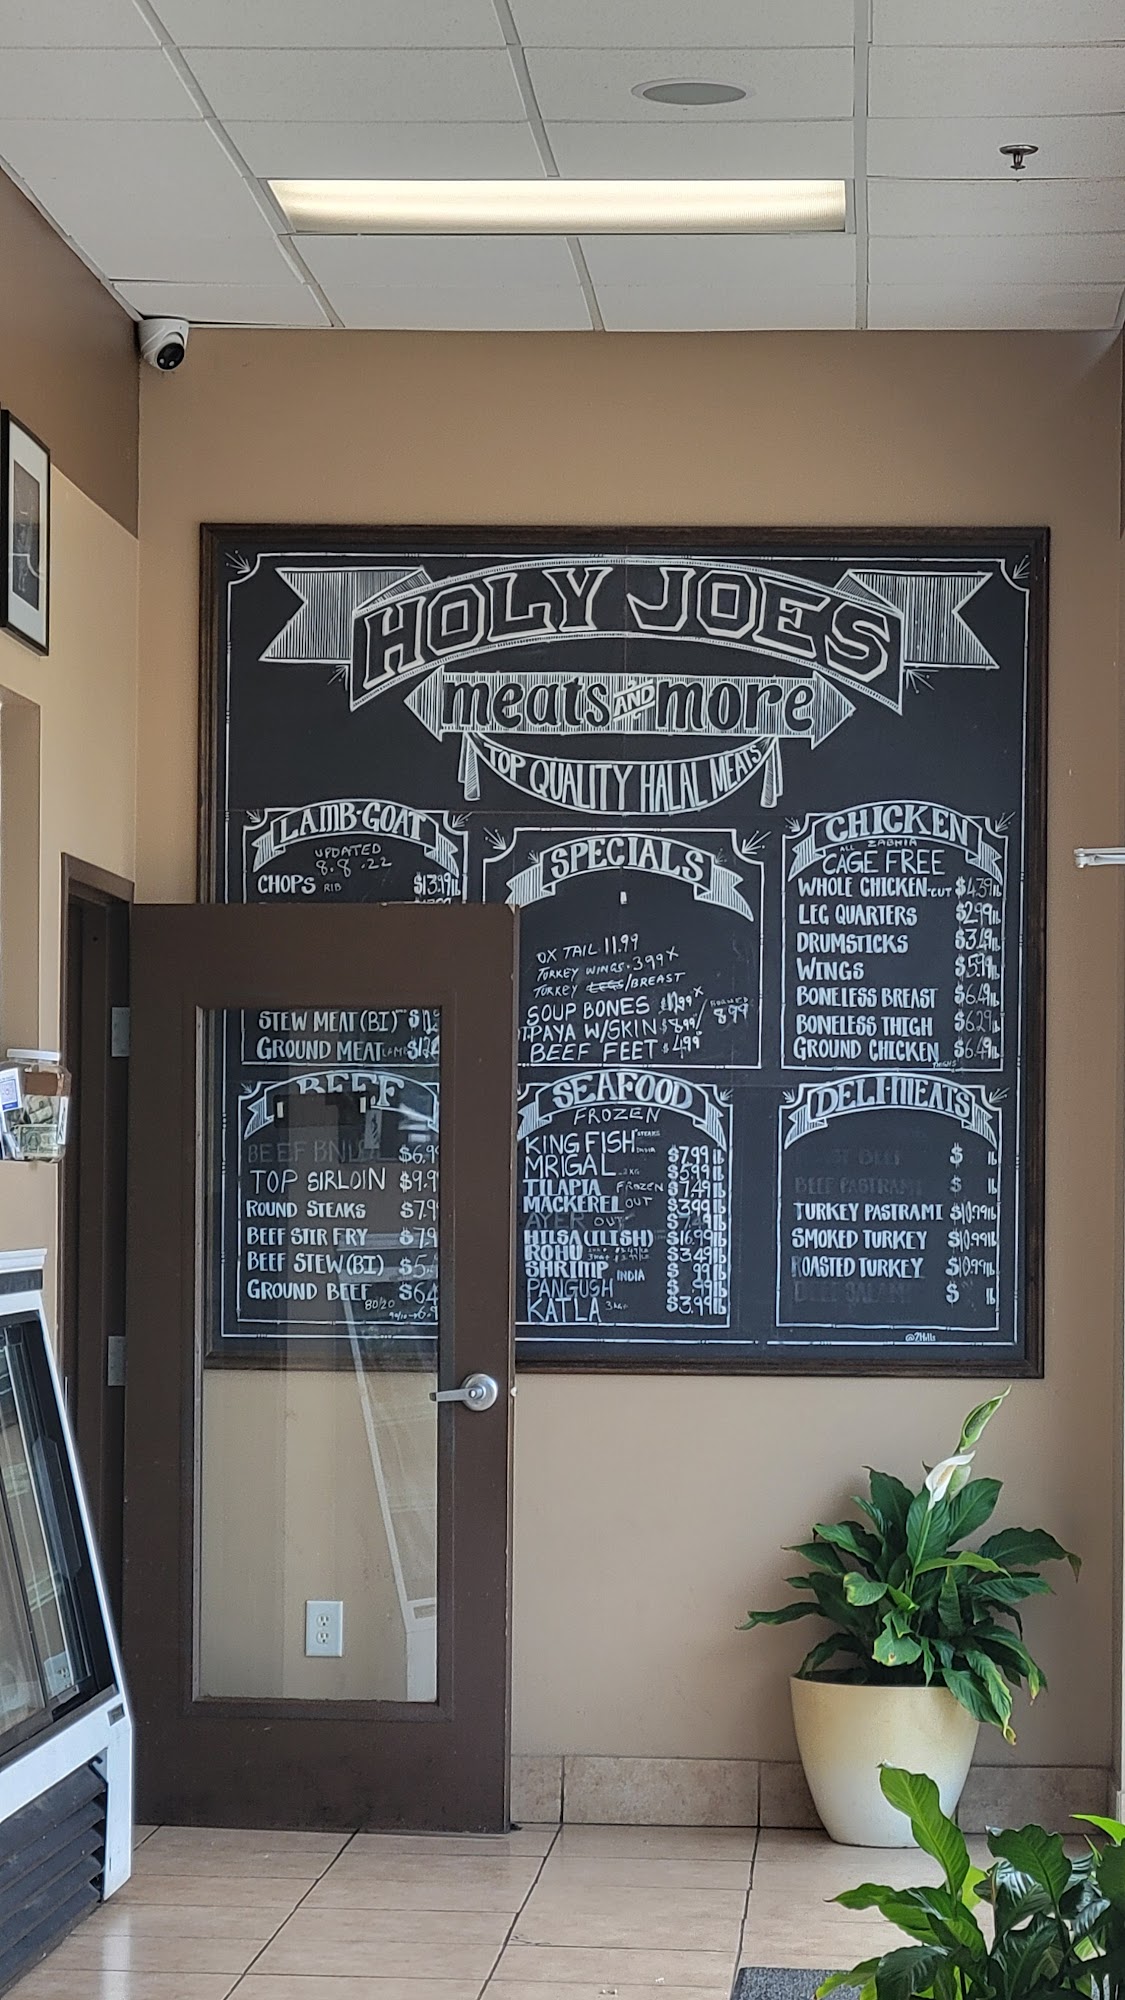 HOLY JOE'S
meats AND more
TOP QUALITY HALAL MEATS
LAMB·GOAT
UPDATED
8.8.22
CHOPS RIB $13.99 lb
STEW MEAT (BI)
GROUND MEAT LAMB
BEEF
$6.9
TOP SIRLOIN $9.9
ROUND STEAKS $7.9
BEEF STIR FRY $7.9
BEEF STEW (BI) $5.
GROUND BEEF $6.4
80/20
SPECIALS
OX TAIL 11.99
TURKEY WINGS. 3.99
TURKEY LEGS/BREAST
SOUP BONES
PAYA W/SKIN $8.99/ 8.99
BEEF FEET $4.99
SEAFOOD
FROZEN
KING FISH STEAKS INDIA $7.99 lb
MRIGAL $5.99 lb
TILAPIA FROZEN $7.49 lb
MACKEREL OUT $3.99 lb
AYER OUT $7.49 lb
HILSA (ILISH) $16.99 lb
ROHU $3.49 lb
SHRIMP INDIA $ .99 lb
PANGUSH $ .99 lb
KATLA $3.99 lb
CHICKEN
ALL ZABIHA
CAGE FREE
WHOLE CHICKEN-CUT $4.39 lb
LEG QUARTERS $2.99 lb
DRUMSTICKS $3.49 lb
WINGS $5.99 lb
BONELESS BREAST $6.49 lb
BONELESS THIGH $6.29 lb
GROUND CHICKEN THIGHS $6.49 lb
DELI-MEATS
BEEF $ lb
BEEF PASTRAMI $ lb
TURKEY PASTRAMI $10.99 lb
SMOKED TURKEY $10.99 lb
ROASTED TURKEY $10.99 lb
BEEF SALAMI $ lb
@2Hills